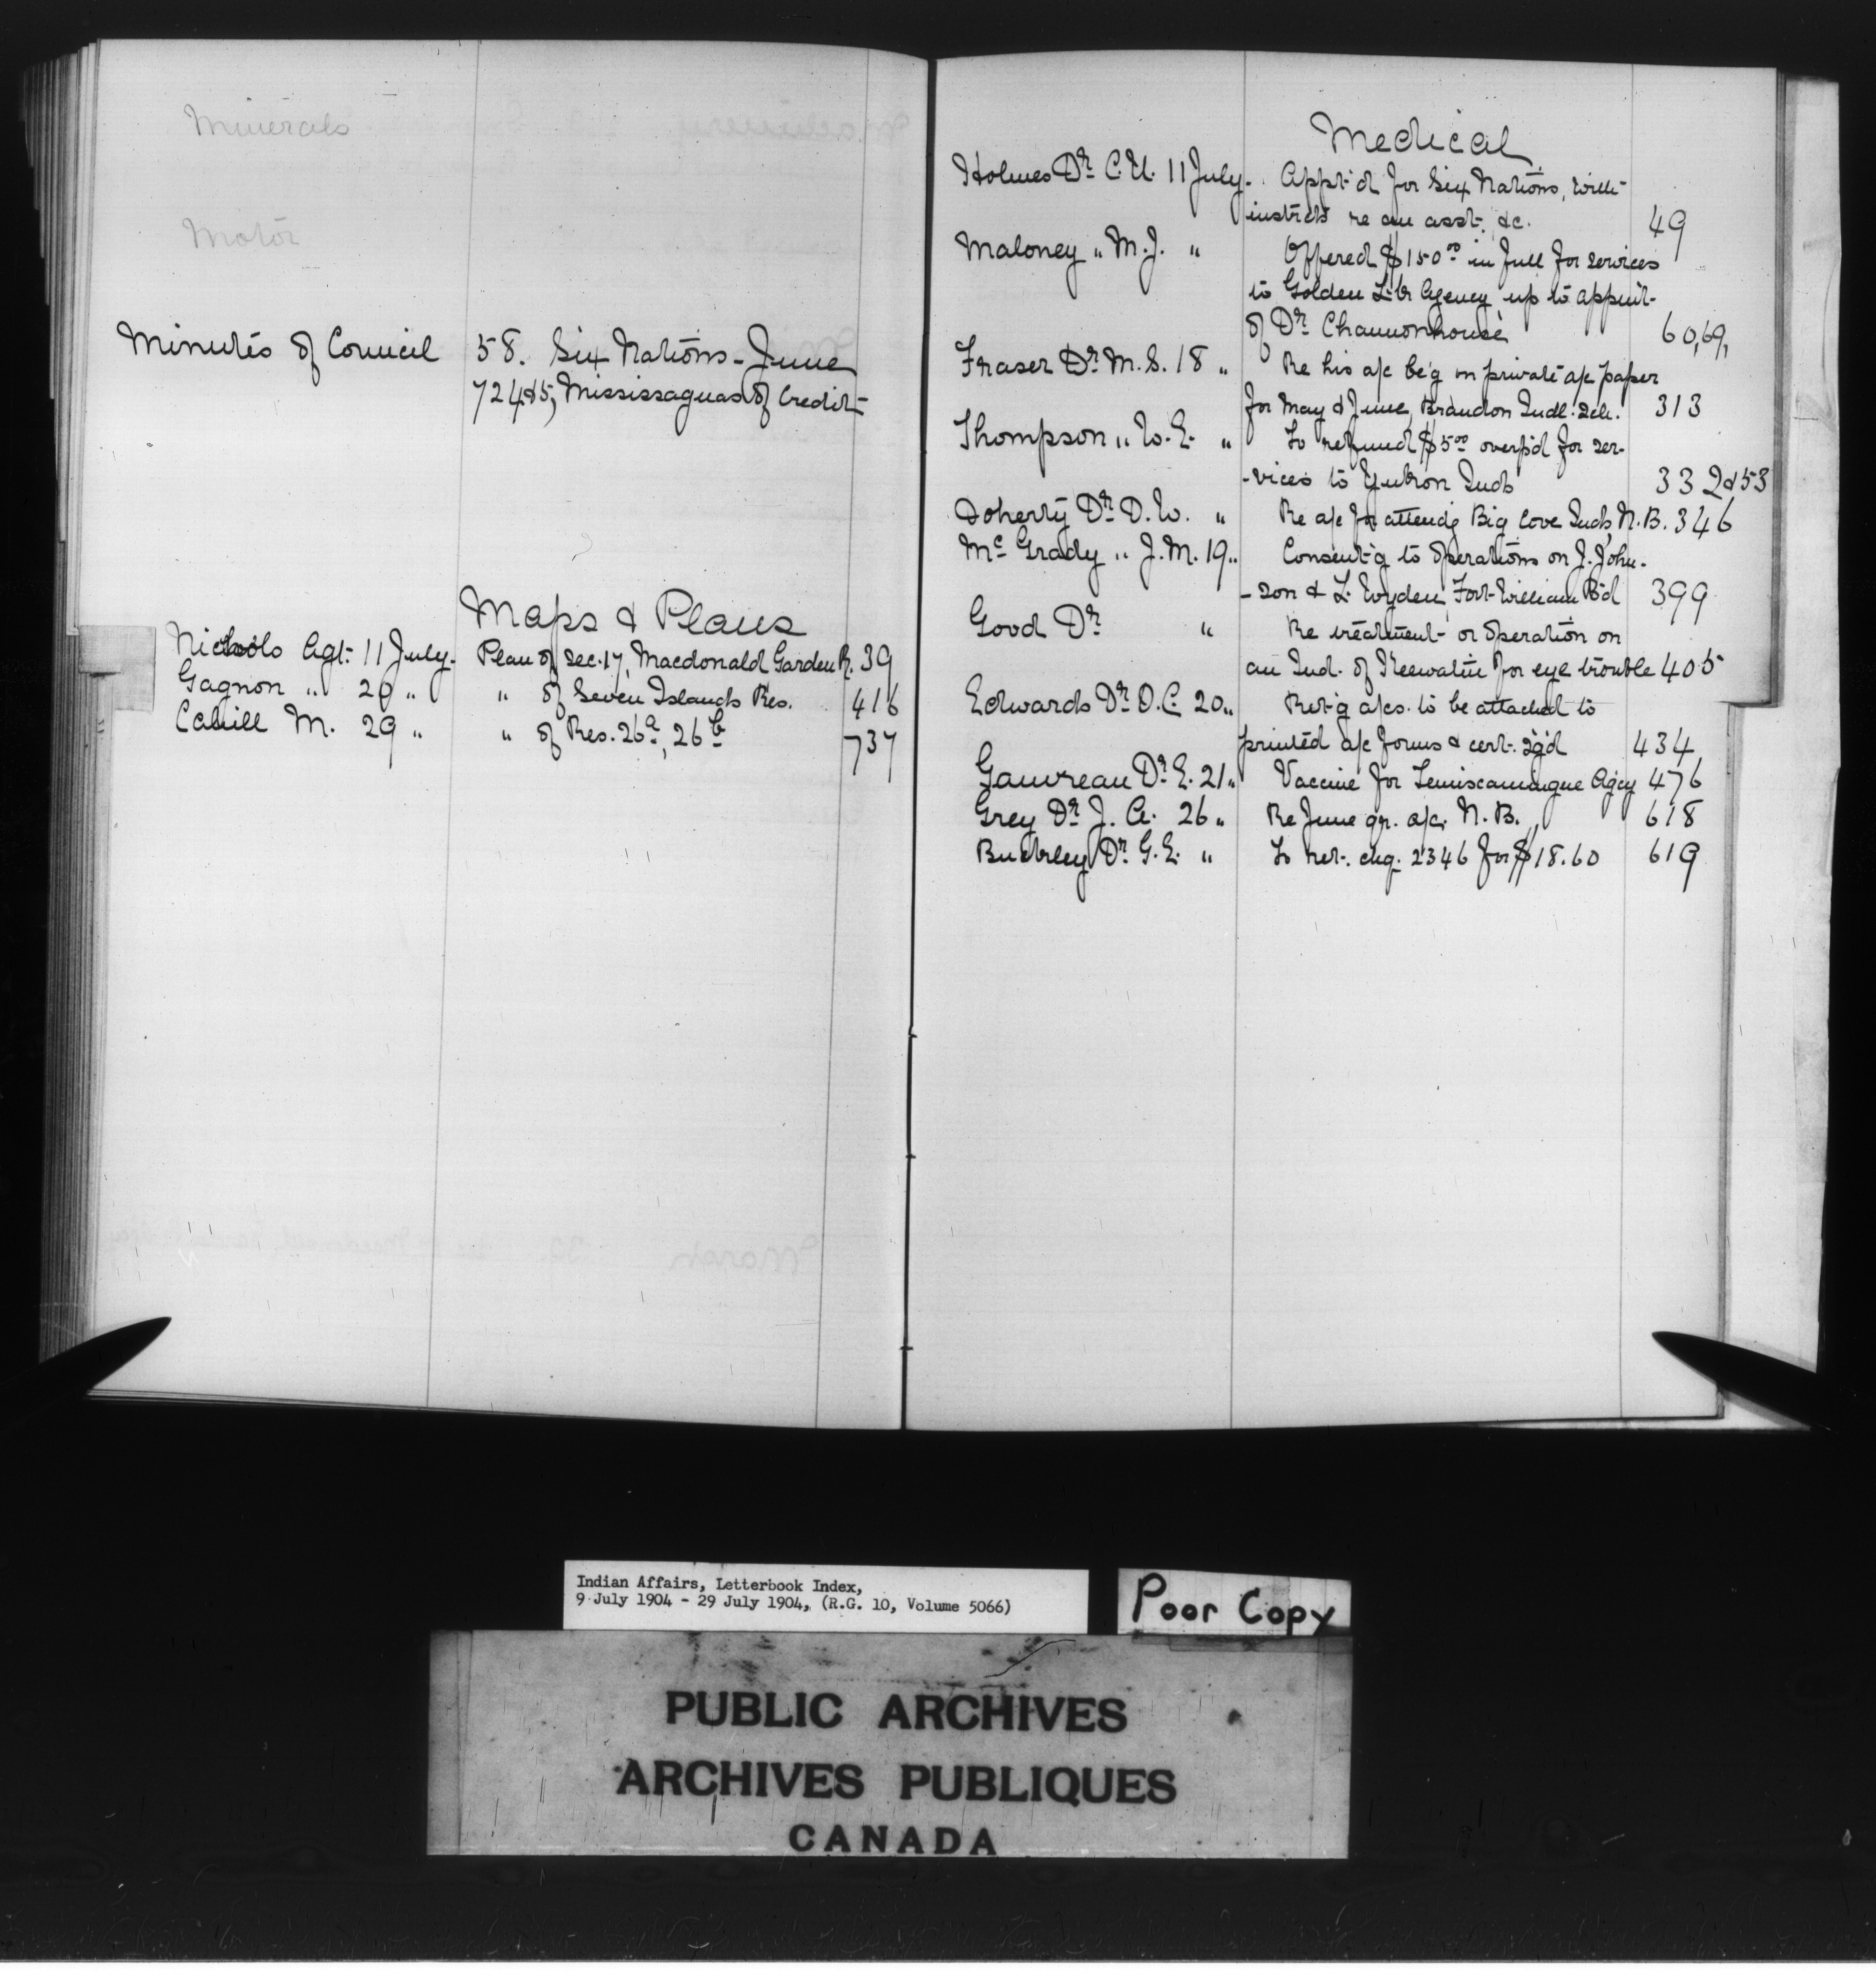 Minerals
Motor
Minutés of Council 58. Six Nations - June
724&5, Mississaguas of Credit
Maps & Plans
Nichols Agt. 11 July. Plan of Sec. 17, Macdonald Garden R. 39
Gagnon " 20 " " of Seven Islands Res. 416
Cahill M. 29 " " of Res. 26a, 26b 737
Medical
Holmes Dr C.U. 11 July. Appt'd for Six Nations, with
instrcts re an asst. &c. 49
Maloney " M.J. " Offered $150.00 in full for services
to Golden L. Agency up to appnt-
of Dr 60,69,
Fraser Dr M.S. 18 " Re his a/c be'g on private a/c paper
for May & June, Brandon Indl. Sch. 313
Thompson " W.E. " To refund $5.00 overp'd for ser-
-vices to Yukon Inds 332&53
Doherty Dr D.W. " Re a/c for attend'g Big Cove Inds, N.B. 346
Mc Grady " J.M. 19 " Consent'g to operations on J. John-
-son & L. Fort William B'd 399
Good Dr " Re treatment or operation on
an Ind. of Keewatin for eye trouble 405
Edwards Dr O.C. 20 " Ret'g a/cs. to be attached to
printed a/c forms & cert. sg'd 434
Gauvreau Dr E. 21 " Vaccine for Temiscamingue Agcy 476
Grey Dr J. A. 26 " Re June qr. a/c. N. B. 618
Buckley Dr G.E. " To ret. chq. 2346 for $18.60 619
Indian Affairs, Letterbook Index,
9 July 1904 - 29 July 1904, (R.G. 10, Volume 5066)
Poor Copy
PUBLIC ARCHIVES
ARCHIVES PUBLIQUES
CANADA